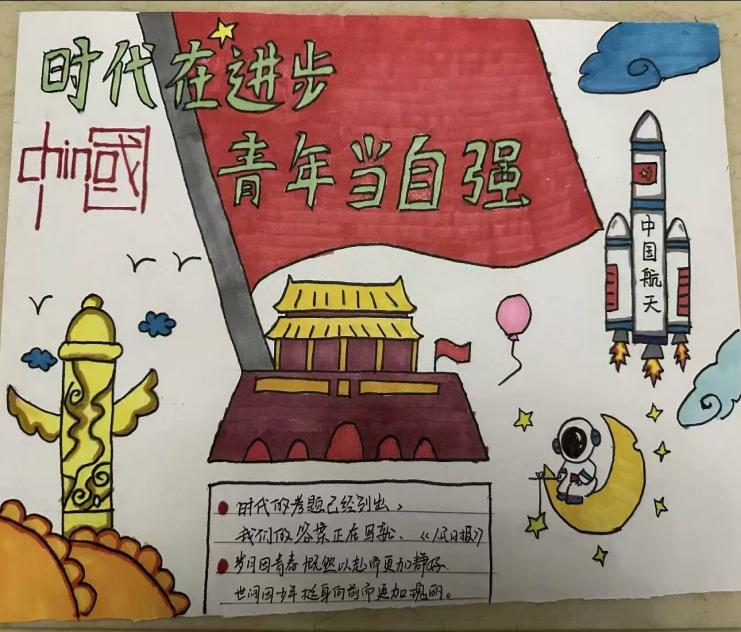 时代在进步
青年当自强
chin国
中国航天
时代的考题已经列出,
我们的答案正在写就。《人民日报》
岁月因青春慨然以赴而更加静好
世间因少年挺身向前而更加瑰丽。